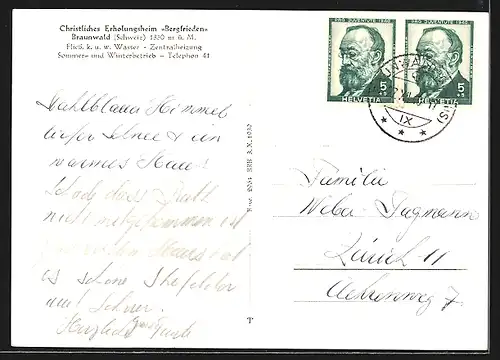 Christliches Erholungsheim «Bergfrieden»
Braunwald (Schweiz) 1330 m ü. M.
Fließ. k. u. w. Wasser - Zentralheizung
Sommer- und Winterbetrieb - Telephon 41
PRO JUVENTUTE 1940
5+5
HELVETIA
PRO JUVENTUTE 1940
5+5
HELVETIA
IX
Stahlblauer Himmel
tiefer Schnee & ein
warmes Haus!
Schade dass Ruth
nicht mitgekommen ist
es schöne Skifelder
und Schnee.
Herzlich
Familie
Weber-Dagmann
Zürich 11
Aehrenweg 7